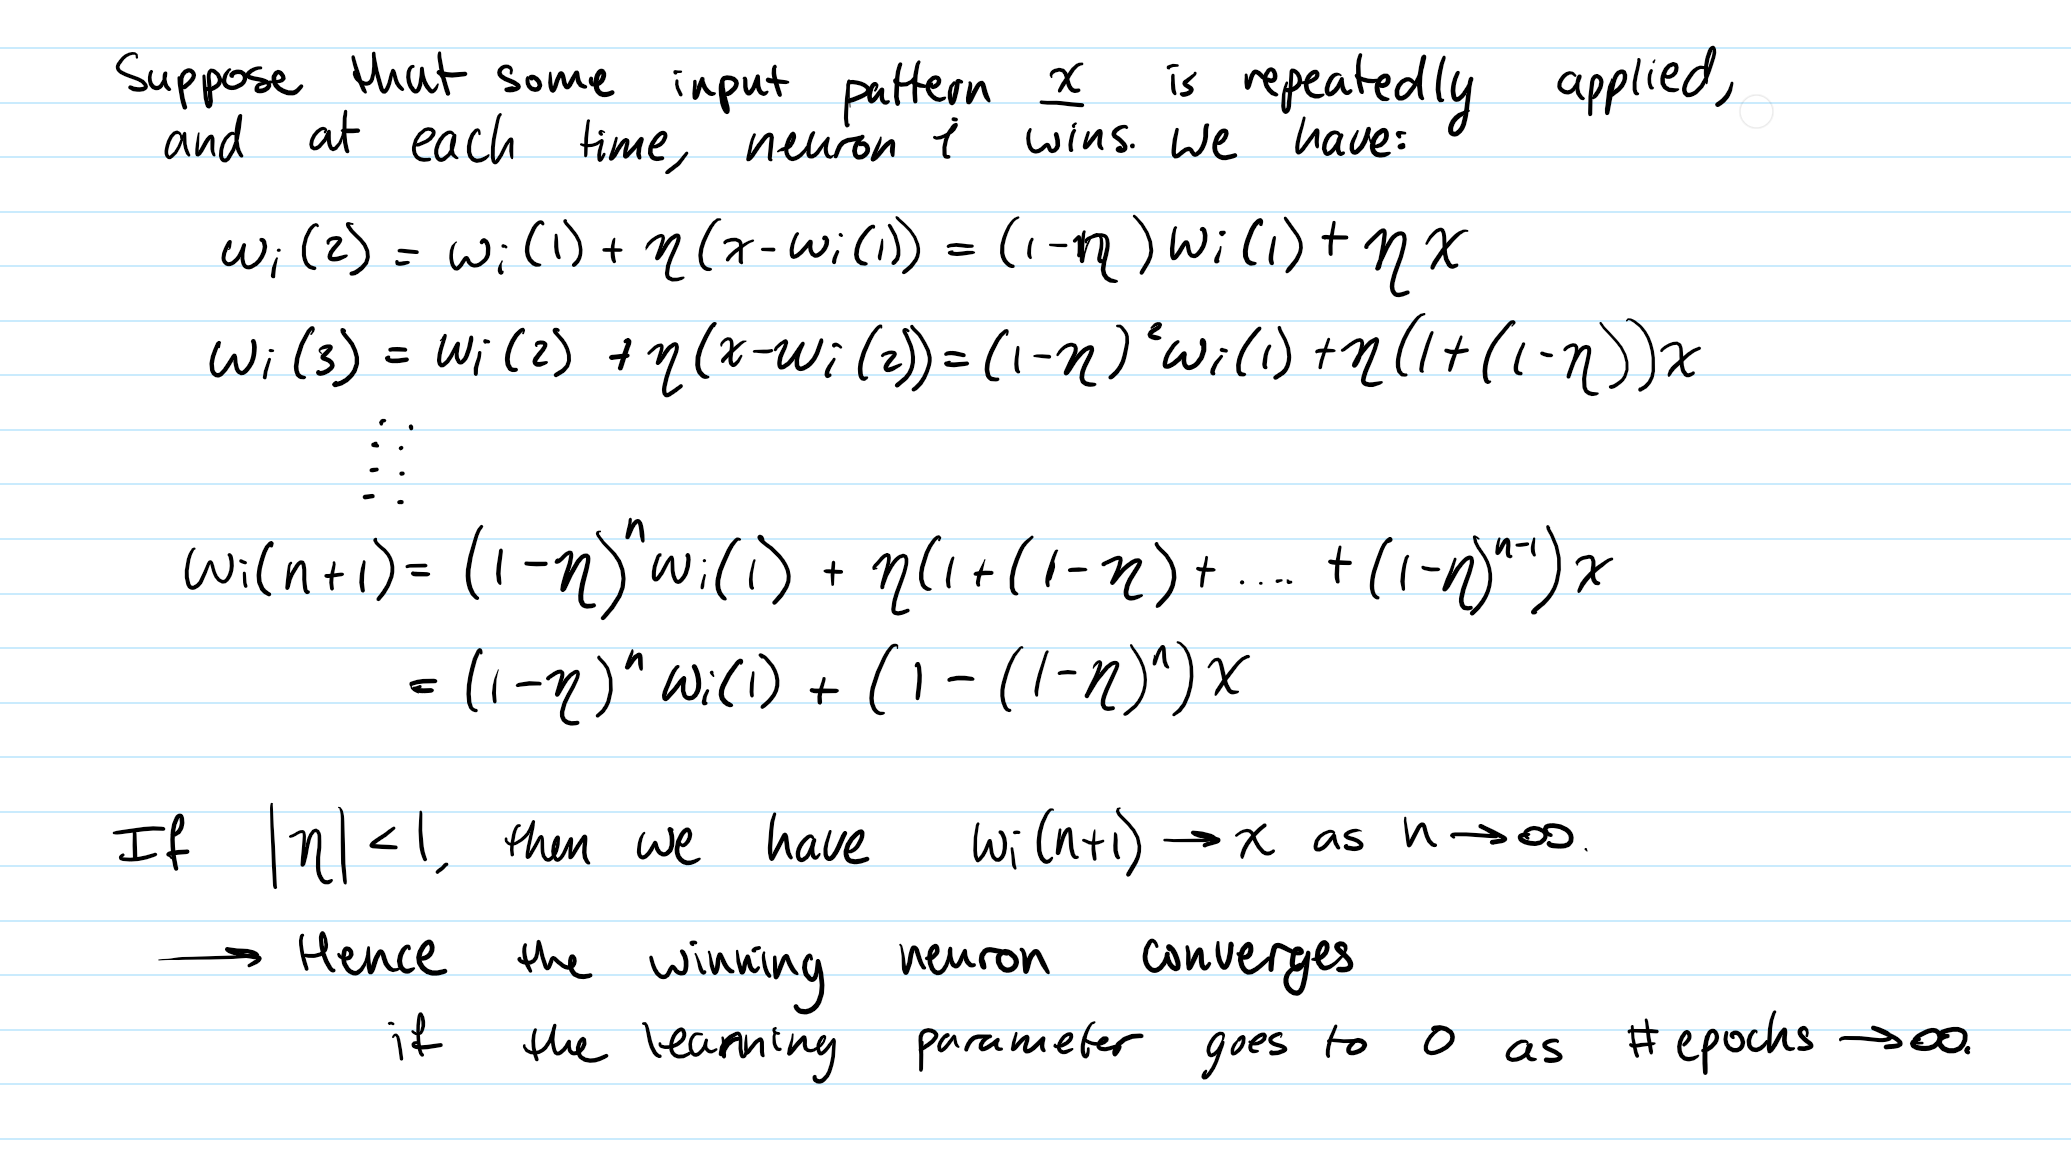 Suppose that some input pattern x is repeatedly applied,
and at each time, neuron i wins. We have:
wi(2) = wi(1) + η(x-wi(1)) = (1-η)wi(1) + ηx
wi(3) = wi(2) + η(x-wi(2)) = (1-η)²wi(1) + η(1+(1-η))x
wi(n+1) = (1-η)ⁿwi(1) + η(1+(1-η)+ .... +(1-η)ⁿ⁻¹)x
= (1-η)ⁿwi(1) + (1-(1-η)ⁿ)x
If |η|<1, then we have wi(n+1) → x as n → ∞.
→ Hence the winning neuron converges
if the learning parameter goes to 0 as # epochs → ∞.